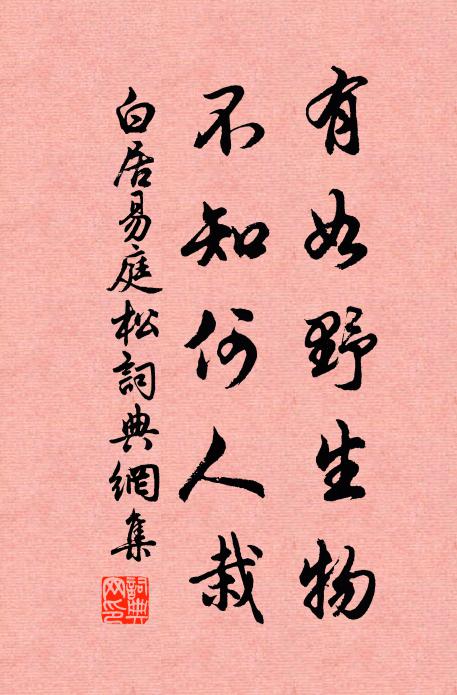 有如野生物
不知何人栽
白居易庭松詞典網集
詞典網印